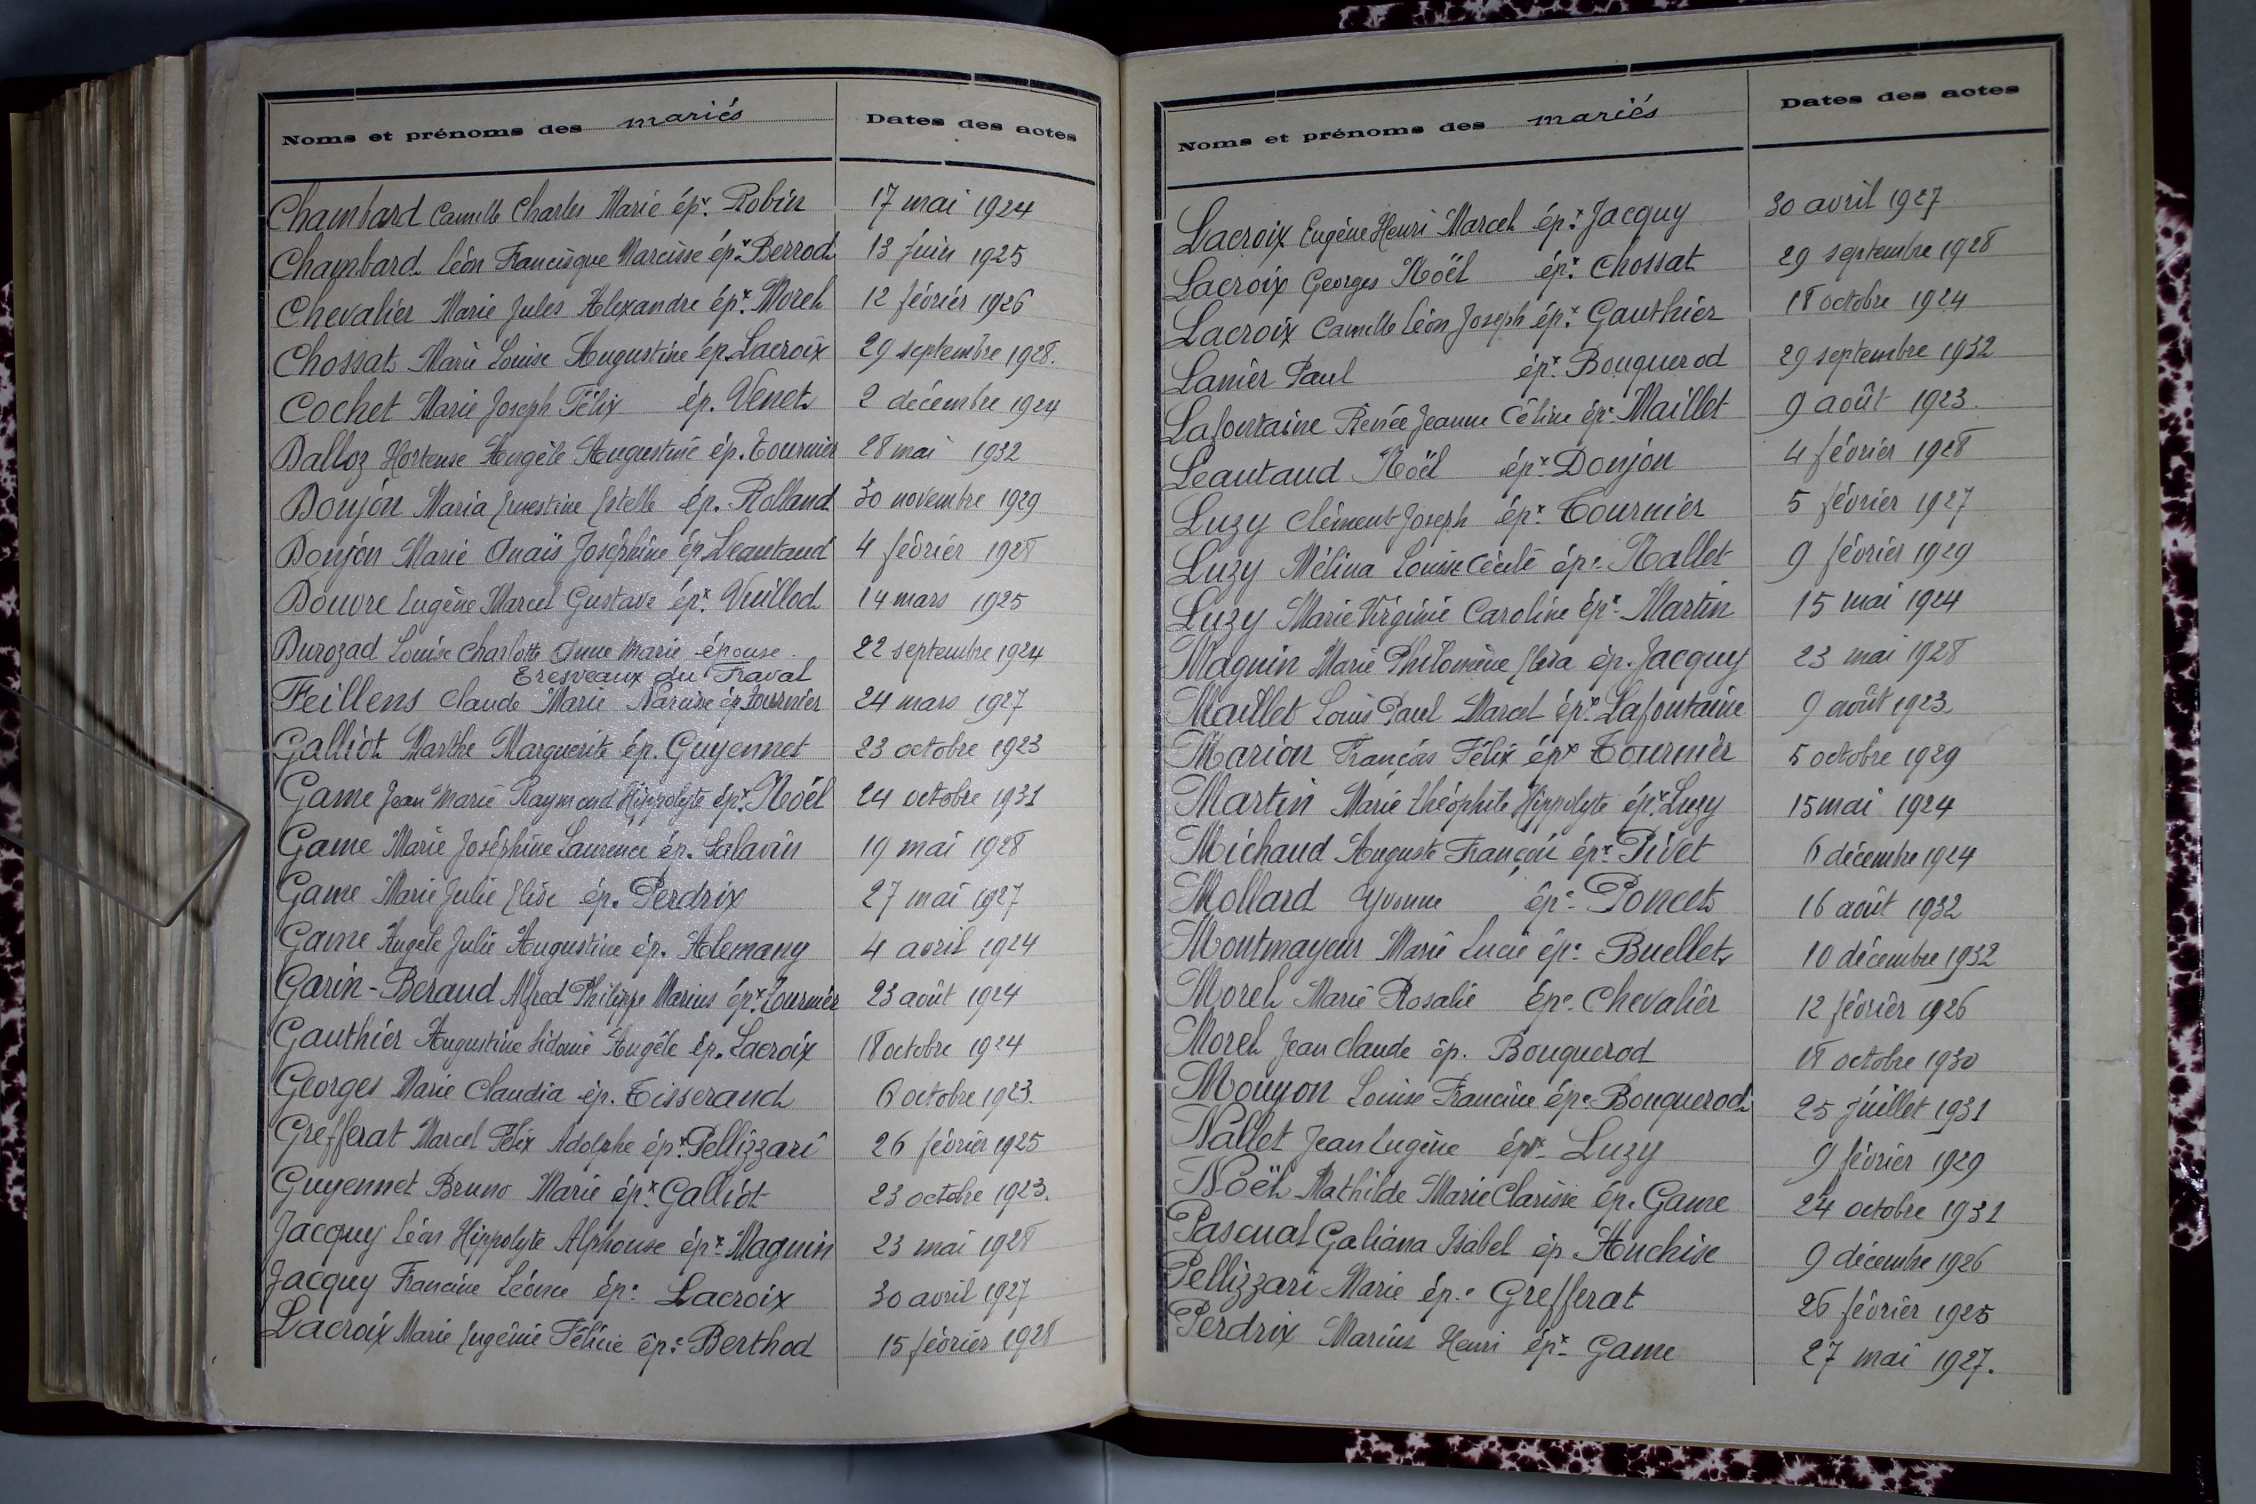 Noms et prénoms des mariés Dates des actes
Chambard Camille Charles Marie épx. Robin 17 mai 1924
Chambard Léon Francisque Narcisse épx. Berrod 13 juin 1925
Chevalier Marie Jules Alexandre épx. Morel 12 février 1926
Chossat Marie Louise Augustine ép. Lacroix 29 septembre 1928.
Cochet Marie Joseph Félix ép. Venet 2 décembre 1924
Dalloz Hortense Angèle Augustine ép. Tournier 28 mai 1932
Donjon Maria Ernestine Estelle ép. Rolland 30 novembre 1929
Donjon Marie Anaïs Joséphine ép. Leautaud 4 février 1928
Douvre Eugène Marcel Gustave épx. Vuillod 14 mars 1925
Durozad Louise Charlotte Anne Marie épouse 22 septembre 1924
Eresveaux du Traval
Feillens Claude Marie Narcisse ép Tournier 24 mars 1927
Galliot Marthe Marguerite ép. Guyennet 23 octobre 1923
Game Jean Marie Raymond Hippolyte épx. Noël 24 octobre 1931
Game Marie Joséphine Laurence ép. Salavin 19 mai 1928
Game Marie Julie Elise ép. Perdrix 27 mai 1927
Game Angèle Julie Augustine ép. Alemany 4 avril 1924
Garin-Beraud Alfred Philippe Marius épx. Tournier 23 août 1924
Gauthier Augustine Sidonie Angèle ép. Lacroix 18 octobre 1924
Georges Marie Claudia ép. Tisserand 6 octobre 1923.
Grefferat Marcel Félix Adolphe épx. Pellizzari 26 février 1925
Guyennet Bruno Marie épx. Galliot 23 octobre 1923.
Jacquy Léon Hippolyte Alphonse épx. Maguin 23 mai 1928
Jacquy Francine Léonce épe. Lacroix 30 avril 1927
Lacroix Marie Eugénie Félicie épe. Berthod 15 février 1928
Noms et prénoms des mariés Dates des actes
Lacroix Eugène Henri Marcel épx. Jacquy 30 avril 1927
Lacroix Georges Noël épx. Chossat 29 septembre 1928
Lacroix Camille Léon Joseph épx. Gauthier 18 octobre 1924
Lanier Paul épx. Bouquerod 29 septembre 1932
Lafontaine Renée Jeanne Céline épe. Maillet 9 août 1923.
Leautaud Noël épx. Donjon 4 février 1928
Luzy Clément Joseph épx. Tournier 5 février 1927
Luzy Mélina Louise Cécile épe. Nallet 9 février 1929
Luzy Marie Virginie Caroline épe. Martin 15 mai 1924
Maguin Marie Philomène Elisa ép. Jacquy 23 mai 1928
Maillet Louis Paul Marcel épx. Lafontaine 9 août 1923
Marion François Félix épx Tournier 5 octobre 1929
Martin Marie Théophile Hippolyte épx. Luzy 15 mai 1924
Michaud Auguste François épx. Pivet 6 décembre 1924
Mollard Yvonne épe. Poncet 16 août 1932
Montmayeur Marie Lucie épe. Buellet 10 décembre 1932
Morel Marie Rosalie épe. Chevalier 12 février 1926
Morel Jean Claude ép. Bouquerod 18 octobre 1930
Mouyon Louise Francine épe. Bouquerod 25 juillet 1931
Nallet Jean Eugène épx. Luzy 9 février 1929
Noël Mathilde Marie Clarisse ép. Game 24 octobre 1931
Pascual Galiana Isabel ép. Anchise 9 décembre 1926
Pellizzari Marie épe. Grefferat 26 février 1925
Perdrix Marius Henri épx. Game 27 mai 1927.